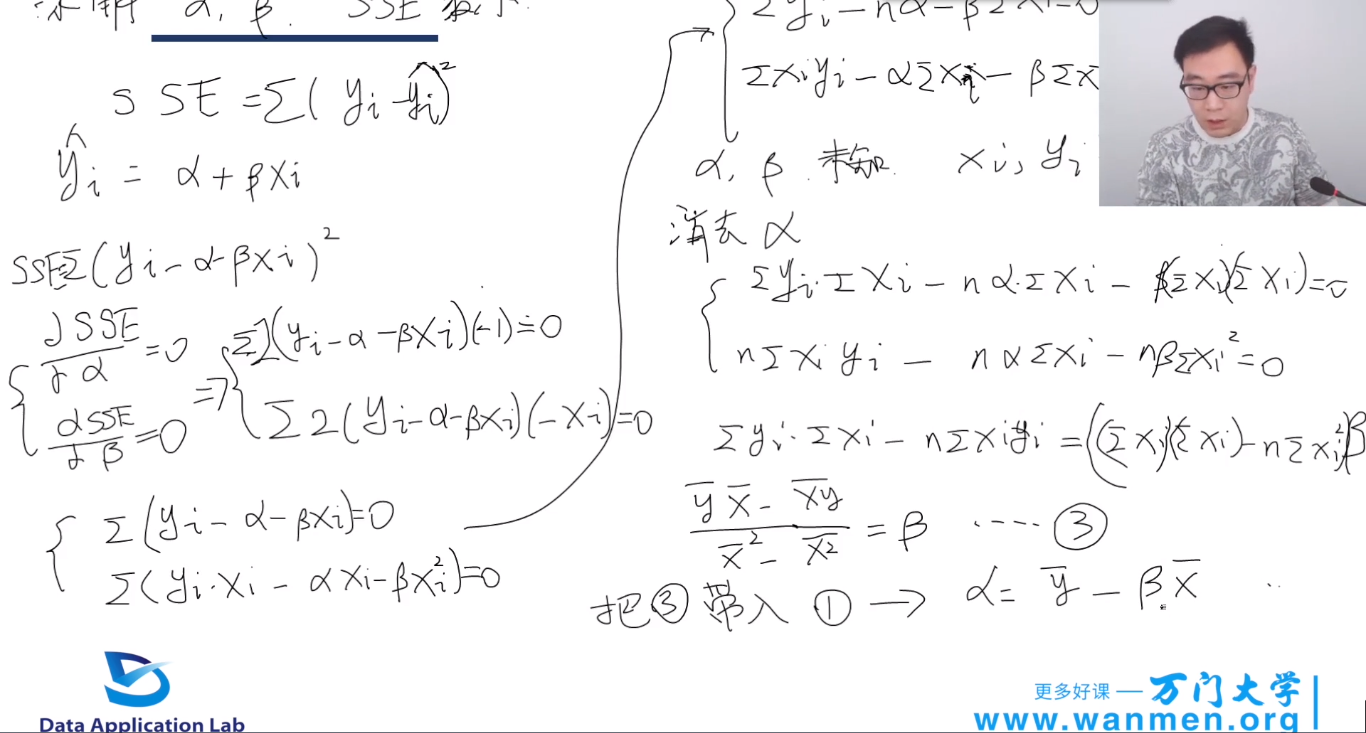 求解 α, β. SSE 最小.
SSE = Σ(yi - ŷi)²
ŷi = α + βxi
SSE=Σ(yi - α - βxi)²
{ dSSE/dα = 0
dSSE/dβ = 0
=> { Σ2(yi - α - βxi)(-1) = 0
Σ2(yi - α - βxi)(-xi) = 0
{ Σ(yi - α - βxi) = 0
Σ(yi·xi - αxi - βxi²) = 0
{ Σyi - nα - βΣxi = 0
Σxiyi - αΣxi - βΣx
α, β 未知. xi, yi
消去 α
{ Σyi·Σxi - nα·Σxi - β(Σxi)(Σxi) = 0
nΣxiyi - nαΣxi - nβΣxi² = 0
Σyi·Σxi - nΣxiyi = ((Σxi)(Σxi) - nΣxi²)β
(y̅ x̅ - x̅y̅) / (x̅² - x̅²̅) = β ····③
把③带入① → α = y̅ - βx̅
Data Application Lab
更多好课 — 万门大学
www.wanmen.org